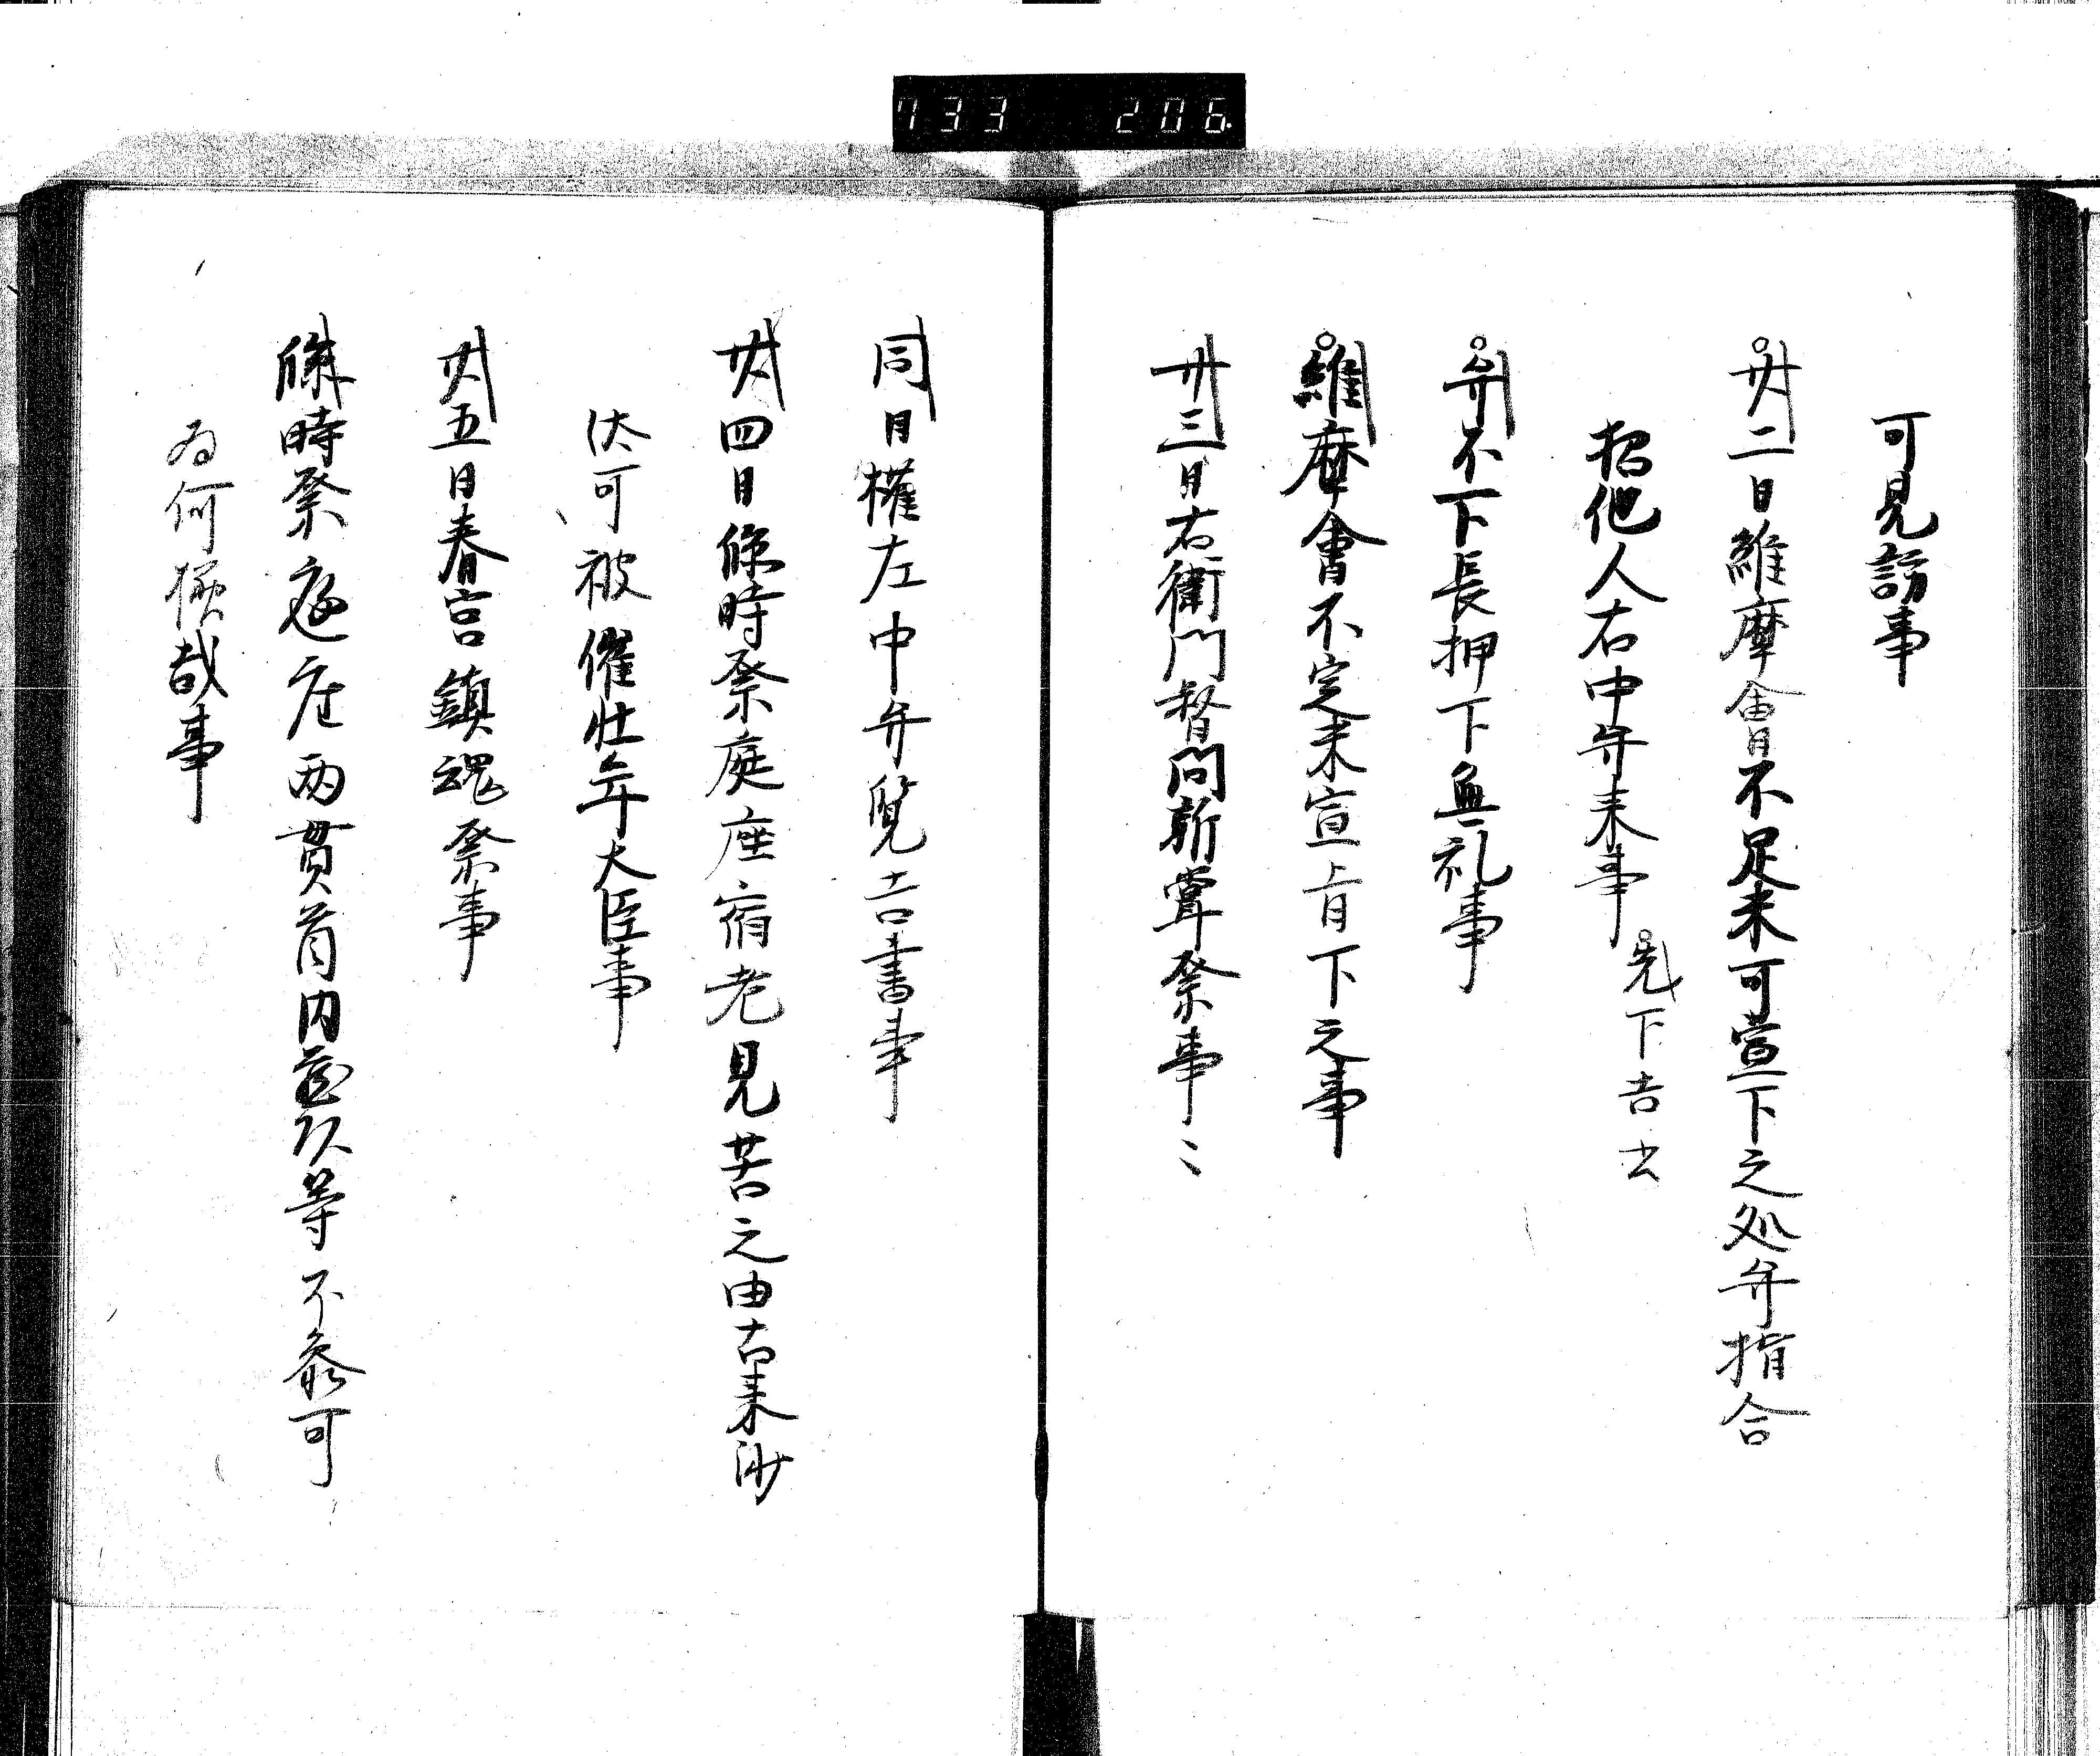 733 206
可見訪事
廿二日維摩會不足米可宣下之処弁指合
招他人右中弁来事
先下吉书
弁不下長押下無礼事
維摩會不定米宣旨下之事
廿三日右衛門督問新嘗祭事〻
同日權左中弁覧吉書事
廿四日臨時祭庭座宿老見苦之由古来沙
汰可被催壮年大臣事
廿五日春宮鎮魂祭事
臨時祭庭座両貫首内蔵頭等不参可
為何様哉事